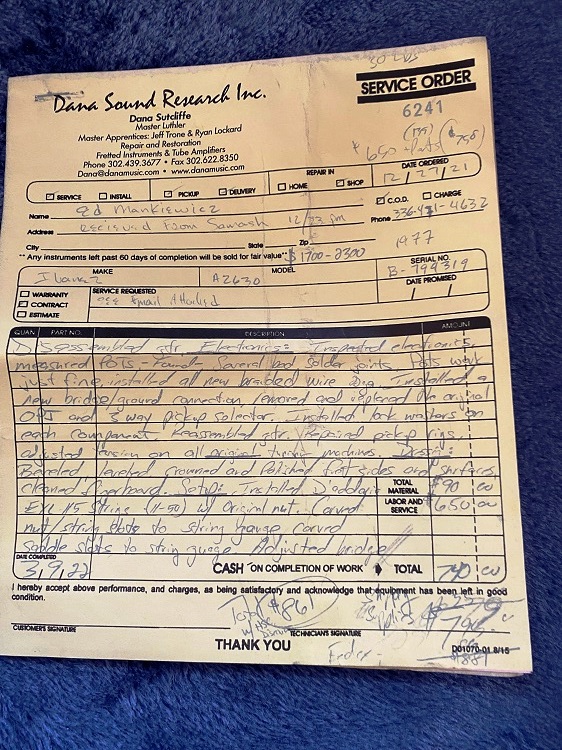 SERVICE ORDER
6241
Dana Sound Research Inc.
Dana Sutcliffe
Master Luthier
Master Apprentices: Jeff Trone & Ryan Lockard
Repair and Restoration
Fretted Instruments & Tube Amplifiers
Phone 302.439.3677 • Fax 302.622.8350
Dana@danamusic.com • www.danamusic.com
$650 + parts
REPAIR IN
DATE ORDERED
12/27/21
SERVICE INSTALL PICKUP DELIVERY HOME SHOP C.O.D. CHARGE
Name Ed Mankiewicz
Phone 336-
4632
Address Received from Samash 12/22 pm
City State Zip
1977
** Any instruments left past 60 days of completion will be sold for fair value** $1700-2300
MAKE MODEL SERIAL NO.
Ibanez A2630 B-799319
WARRANTY SERVICE REQUESTED DATE PROMISED
CONTRACT See Email Attached / /
ESTIMATE
QUAN. PART NO. DESCRIPTION AMOUNT
Disassembled gtr. Electronics: Inspected electronics,
measured Pots - Found Several bad solder joints. Pots work
just fine, installed all new braided wire Installed a
new bridge/ground connection, removed and replaced the original
and 3 way pickup selector. Installed lock washers on
each component. Reassembled gtr. Repaired pickup rings,
adjusted tension on all original tuning machines.
Beveled leveled crowned and Polished fret sides and surfaces,
cleaned fingerboard. Setup: Installed D'addario
TOTAL MATERIAL $90 00
EXL 115 String (11-50) w/ Original nut. Carved
LABOR AND SERVICE $650 00
nut/string slots to string gauge carved
saddle slots to string guage. Adjusted bridge
DATE COMPLETED
3,9,22
CASH ON COMPLETION OF WORK TOTAL 740 00
I hereby accept above performance, and charges, as being satisfactory and acknowledge that equipment has been left in good
condition.
Total $861
CUSTOMER'S SIGNATURE TECHNICIAN'S SIGNATURE
THANK YOU
Fedex-
D01070-01.8/15